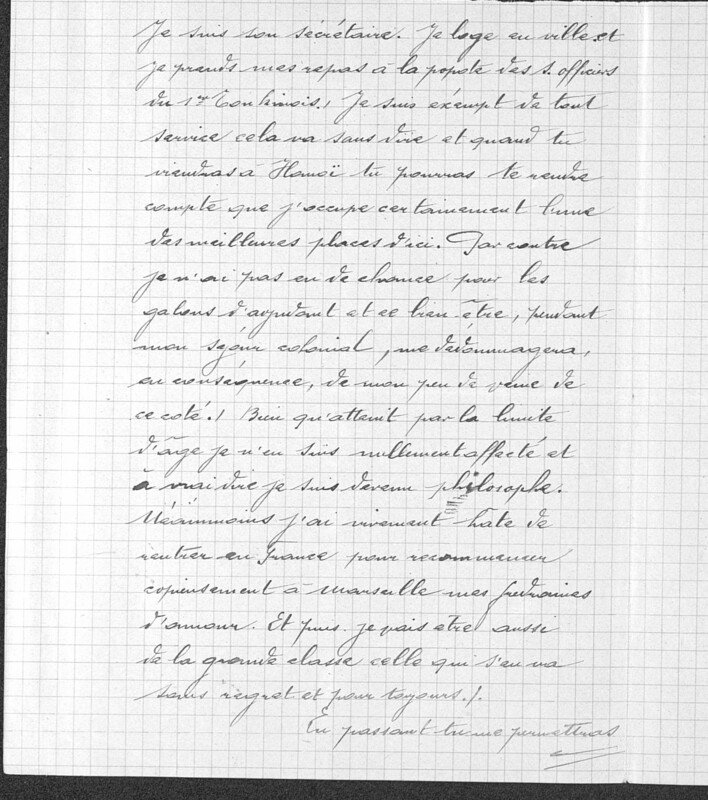 Je suis son secrétaire. Je loge en ville et
je prends mes repas à la popote des s. officiers
du 1er Tonkinois.! Je suis exempt de tout
service cela va sans dire et quand tu
viendras à Hanoï tu pourras te rendre
compte que j'occupe certainement l'une
des meilleures places d'ici. Par contre
je n'ai pas eu de chance pour les
galons d'adjudant et ce bien-être, pendant
mon séjour colonial, me dédommagera,
en conséquence, de mon peu de veine de
ce coté.! Bien qu'atteint par la limite
d'âge je n'en suis nullement affecté et
à vrai dire je suis devenu philosophe.
Néammoins j'ai vivement hâte de
rentrer en France pour recommencer
copieusement à Marseille mes fredaines
d'amour. Et puis je vais être aussi
de la grande classe celle qui s'en va
sans regret et pour toujours.!.
En passant tu me permettras